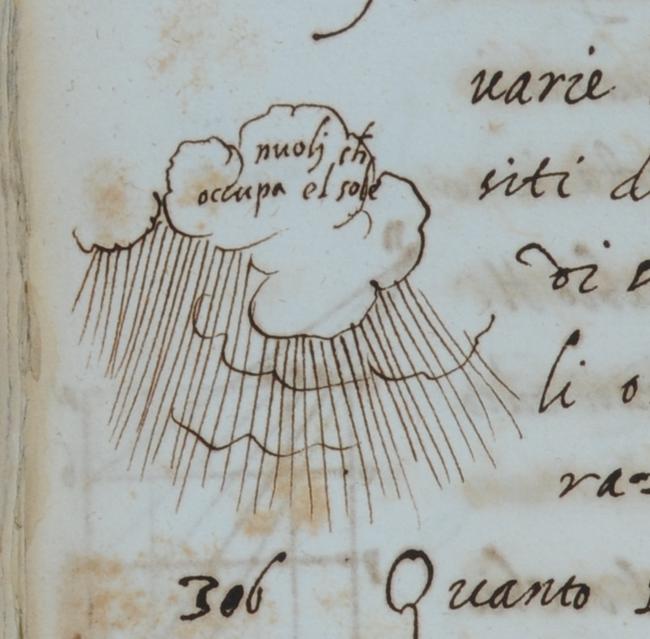 nuoli ch
occupa el sole
uarie
siti d
di
li o
ra
306 Quanto